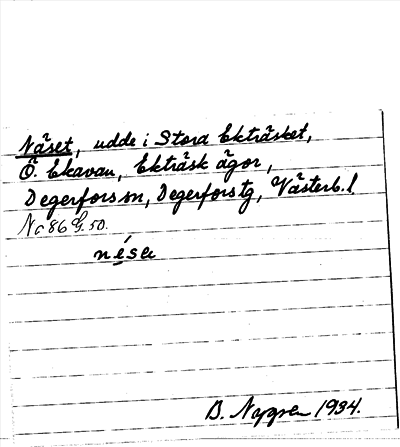 Näset, udde i Stora Ekträsket,
Ö. Ekavan, Ekträsk ägor,
Degerfors sn, Degerfors tg, Västerb. l.
No 86 G. 50.
B. Nygren 1934.